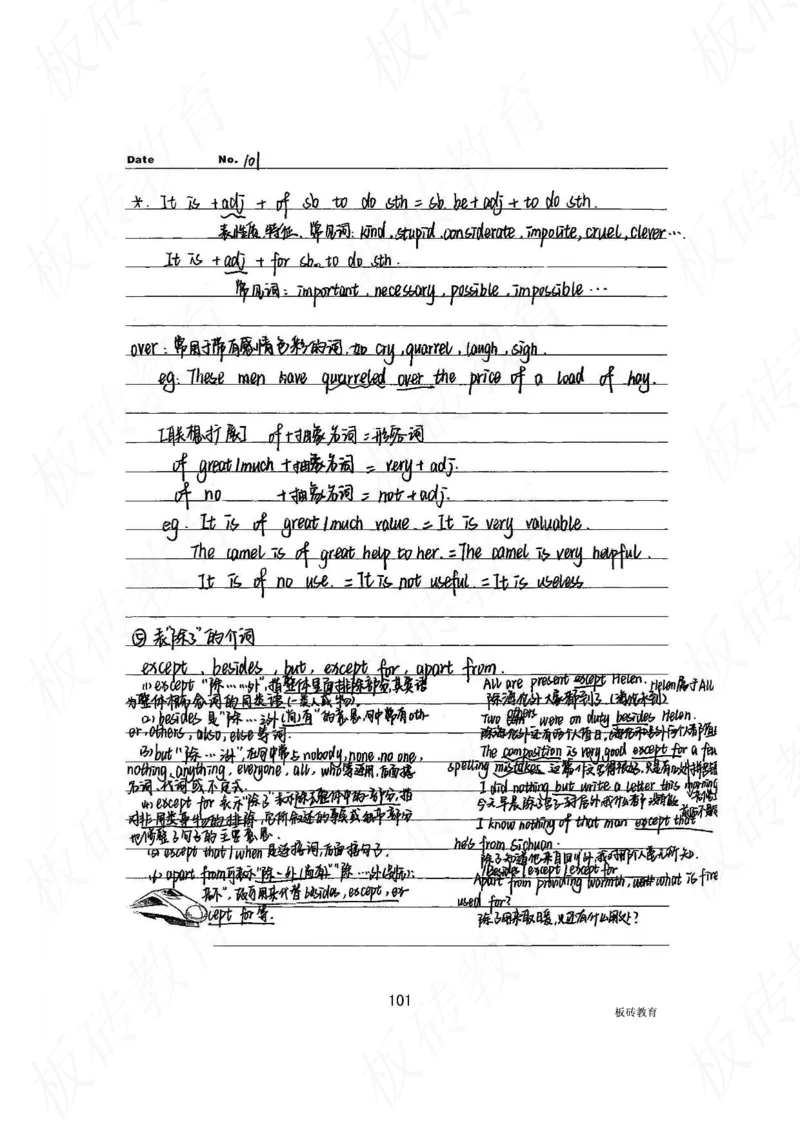 Date No. 101
*. It is + adj + of sb to do sth = sb. be + adj + to do sth.
表性质,特征、常见词: kind, stupid, considerate, impolite, cruel, clever …
It is + adj + for sb. to do sth.
常见词: important, necessary, possible, impossible …
over: 常用于带有感情色彩的词, 如 cry, quarrel, laugh, sigh.
eg: These men have quarreled over the price of a load of hay.
[联想扩展] of+抽象名词=形容词
of great/much +抽象名词 = very + adj.
of no +抽象名词 = not + adj.
eg. It is of great/much value. = It is very valuable.
The camel is of great help to her. = The camel is very helpful.
It is of no use. = It is not useful. = It is useless
⑤ 表"除了"的介词
except, besides, but, except for, apart from.
(1) except "除……外", 指整体里面排除部分,
为整体
(2) besides 是"除…外(尚)有"的意思,句中常有oth-
er, others, also, else 等词.
(3) but "除…外", 在句中常与 nobody, none, no one,
nothing, anything, everyone, all, who等连用, 后面接
名词、代词或不定式.
(4) except for 表示"除了"表示
对非同类事物的排除,
(5) except that/when 是连接词, 后面接句子.
(6) apart from可表示"除…外(尚有)" "除…外(别无);
若不", 故可用来代替 besides, except, ex-
cept for 等.
All are present except Helen. Helen属于All
除海伦外大家都到了 (海伦未到)
Two others were on duty besides Helen.
The composition is very good except for a few
spelling mistakes
I did nothing but write a letter this morning
今天早晨除了写了一封信外我什么都没有做
I know nothing of that man except that
he's from Sichuan.
/besides/except/except for
Apart from providing warmth, what is fire
used for?
除了用来取暖,火还有什么用处?
101
板砖教育